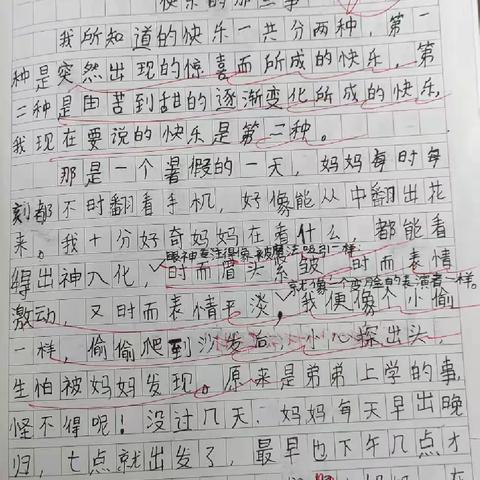 快乐的那些事
我所知道的快乐一共分两种，第一
种是突然出现的惊喜而所成的快乐，第
二种是由苦到甜的逐渐变化所成的快乐，
我现在要说的快乐是第二种。
那是一个暑假的一天，妈妈每时每
刻都不时翻看手机，好像能从中翻出花
来。我十分好奇妈妈在看什么，都能看
眼神专注得像被魔法吸引一样
得出神入化，时而眉头紧皱，时而表情
就像一个变脸的表演者一样。
激动，又时而表情平淡，我便像个小偷
一样，偷偷爬到沙发后，小心探出头，
生怕被妈妈发现。原来是弟弟上学的事，
怪不得呢！没过几天，妈妈每天早出晚
归，七点就出发了，最早也下午几点才